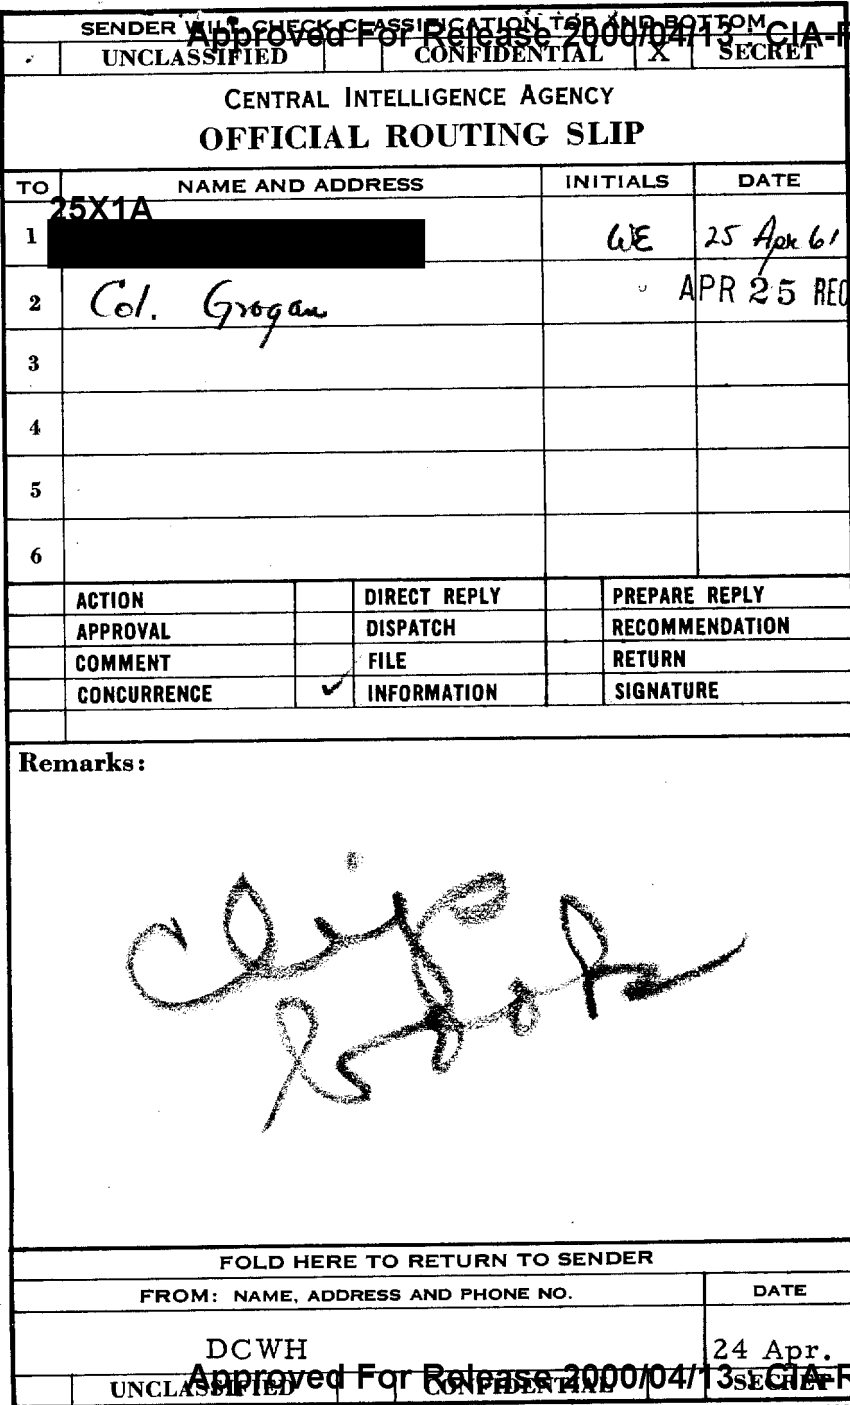 SENDER WILL CHECK CLASSIFICATION TOP AND BOTTOM
Approved For Release 2000/04/13 : CIA-R
UNCLASSIFIED CONFIDENTIAL X SECRET
CENTRAL INTELLIGENCE AGENCY
OFFICIAL ROUTING SLIP
TO NAME AND ADDRESS INITIALS DATE
25X1A
1 WE 25 Apr 61
2 Col. Grogan APR 25 REC
3
4
5
6
ACTION DIRECT REPLY PREPARE REPLY
APPROVAL DISPATCH RECOMMENDATION
COMMENT FILE RETURN
CONCURRENCE ✓ INFORMATION SIGNATURE
Remarks:
Clip
book
FOLD HERE TO RETURN TO SENDER
FROM: NAME, ADDRESS AND PHONE NO. DATE
DCWH 24 Apr.
Approved For Release 2000/04/13 : CIA-R
UNCLASSIFIED CONFIDENTIAL SECRET